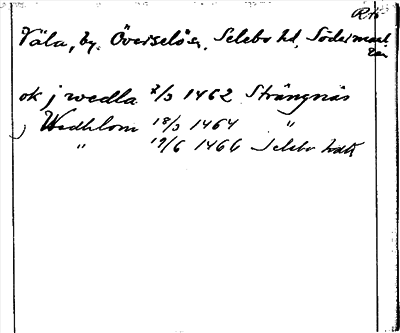 Väla, by. Överselö sn, Selebo hd, Södermanl.
ok j wedla 2/3 1462 Strängnäs
j Wedhlom 18/3 1464 "
" 19/6 1466 Selebo hdk